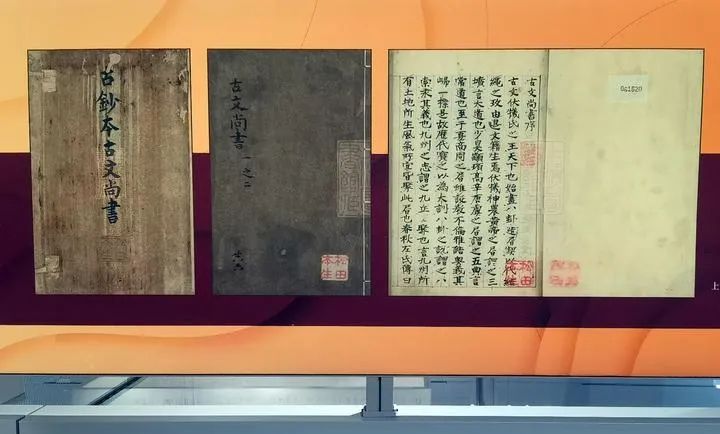 古鈔本古文尚書
古文尚書 一之二
松田本生
古文尚書序
古文伏犧氏之王天下也始畫八卦造書契以代結
繩之政由是文籍生焉伏犧神農黃帝之書謂之三
墳言大道也少昊顓頊高辛唐虞之書謂之五典言
常道也至于夏商周之書雖設教不倫雅誥奧義其
歸一揆是故歷代寶之以為大訓八卦之說謂之八
索求其義也九州之志謂之九丘丘聚也言九州所
有土地所生風氣所宜皆聚此書也春秋左氏傳曰
松田本生
上